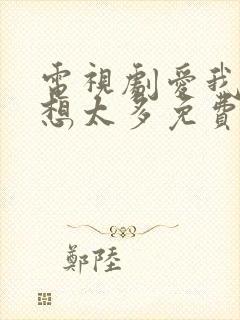 電視劇愛我
想太多免費
鄭陸